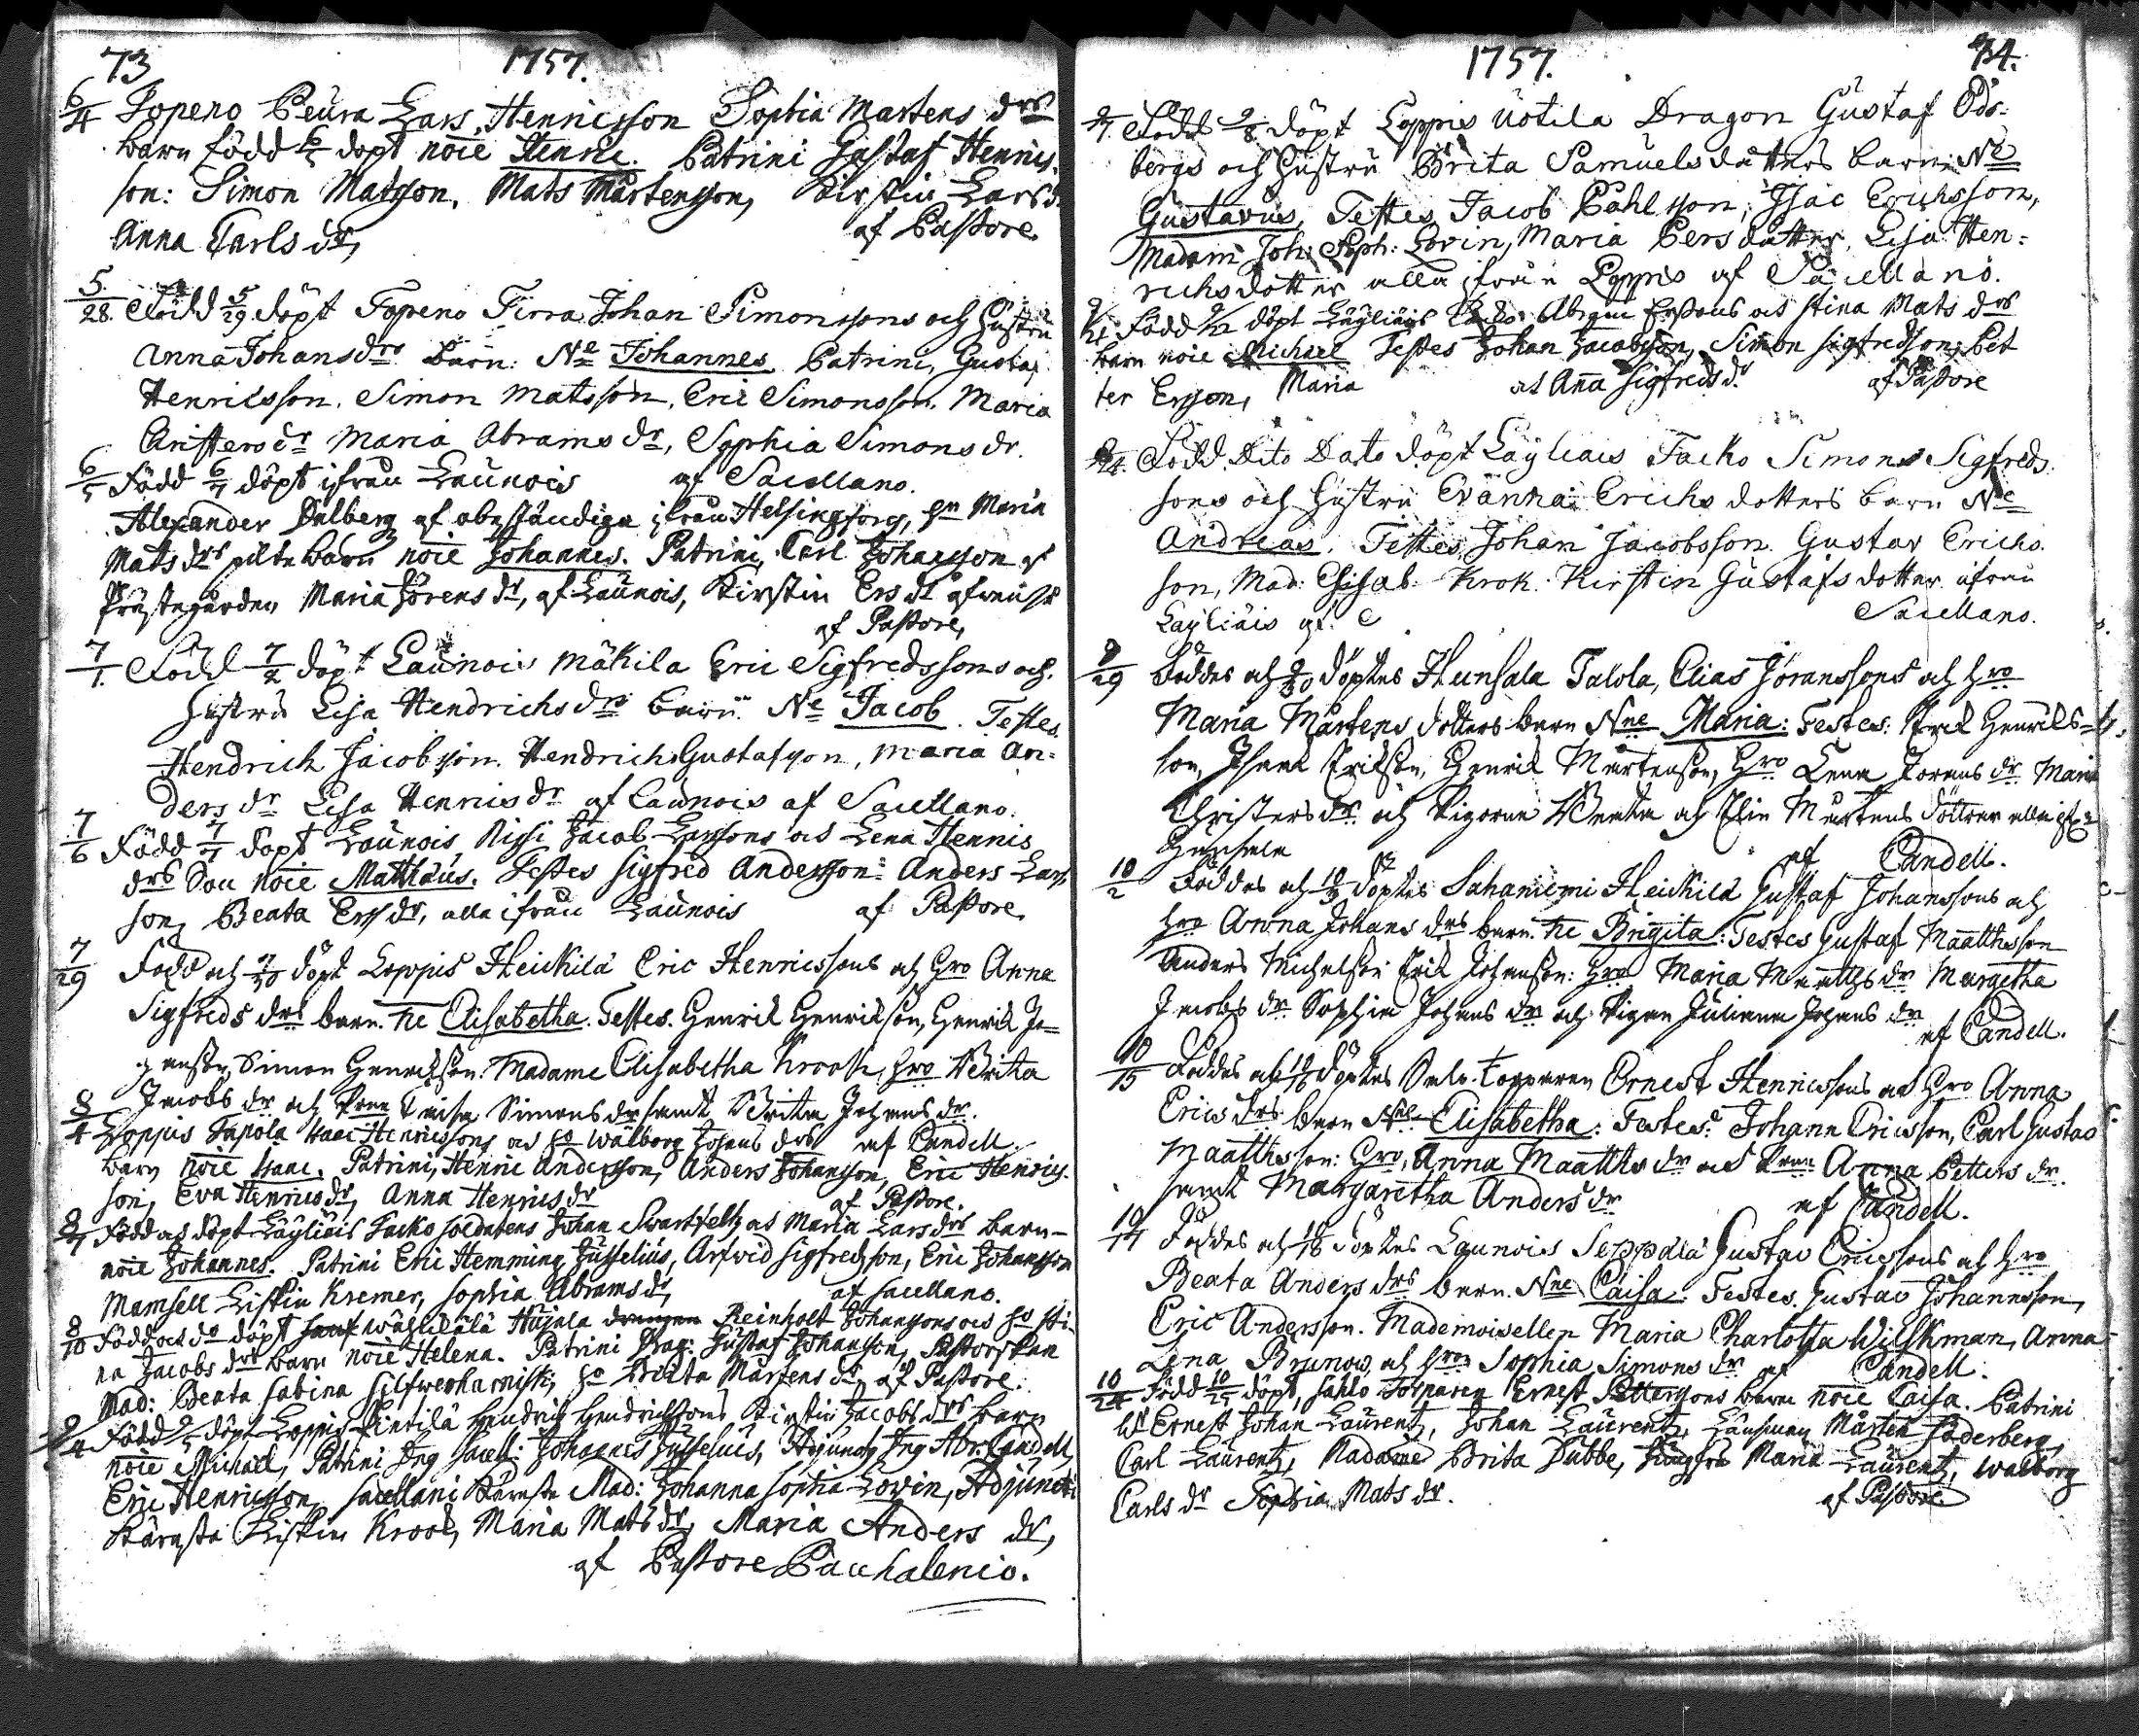 73 1757.
6/4 Topeno Peura Lars Henricsson Sophia Martens drs
barn född 6/5 döpt noie Henric. Patrini Gustaf Henrics-
son: Simon Matsson, Mats Mårtensson, Kirstin Larsd.
Anna Carls dr, af Pastore.
5/28. Född 5/29 döpt Topeno Tirra Johan Simonssons och hustru
Anna Johansdrs barn: Ne Johannes Patrini, Gustaf
Henricsson. Simon Matsson, Eric Simonsson. Maria
Christersdr Maria Abramsdr, Sophia Simons dr.
af Sacellano.
6/5 Född 6/7 döpt ifrån Launois
Alexander Dalberg af obeständiga ifrån Helsingfors, Maria
Mats drs barn noie Johannes. Patrini, Carl Johansson
Prästegården Maria Jörens dr, af Launois, Kirstin Ers dr
af Pastore,
7/1. Född 7/2 döpt Launois Mäkila Eric Sigfredssons och
hustru Lisa Hendrichsdrs barn. Ne Jacob. Testes
Hendrich Jacobsson. Hendrich Gustafsson, Maria An-
ders dr Lisa Henricsdr af Launois af Sacellano.
7/6 Född 7/7 döpt Launois Rissi Jacob Larssons och Lena Henrics
drs Son noie Matthäus. Testes Sigfred Andersson: Anders Lars-
son, Beata Ersdr, alla ifrån Launois af Pastore.
7/29 Född och 7/30 döpt Loppis Heickilä Eric Henricssons och Hro Anna
Sigfreds drs barn. ne Elisabetha. Testes. Henrik Henriksson, Henrik Jo-
hansson, Simon Henriksson. Madame Elisabetha Krook, hro Brita
Jacobs dr och Caisa Simons dr samt Brita Johans dr.
af Candell.
8/4 Loppis Tapola Isaac Henricssons och ho Walborg Johans drs
barn noie Isaac. Patrini, Henric Andersson, Anders Johansson, Eric Henrics-
son, Eva Henricsdr, Anna Henricsdr af Pastore.
8/7 Född och döpt Läyliäis Facko soldatens Johan Swartfeltz och Maria Larsdrs barn
noie Johannes. Patrini Eric Hemming Jusselius, Arfwid Sigfredsson, Eric Johansson
Mamsell Liskin Kremer, Sophia Abrams dr, af Sacellano.
8/10 Född och do döpt Hujala Reinholt Johanssons och ho Sti-
na Jacobs drs barn noie Helena. Patrini Drag: Gustaf Johansson, Pastorskan
Mad: Beata Sabina Silfwerharnisk, ho Britta Mårtens dr, af Pastore.
9/4 Född 9/5 döpt Loppis Pintilä Hendrich Hendrichssons Kirstin Jacobs drs barn
noie Michael, Patrini Jng Sacell: Johannes Jusselius, Adjunct, Jng Abr: Candell,
Eric Henricsson, Sacellani Kärasta Mad: Johanna Sophia Lovin, Adjuncti
Kärasta Liskin Krook, Maria Matsdr, Maria Anders dr,
af Pastore Pacchalenio.
1757. 74.
9/7. Född 9/8 döpt Loppis Uotila Dragon Gustaf Ods-
bergs och hustru Brita Samuels dotters barn Ne
Gustavus, Testes Jacob Påhlsson, Isac Erichsson,
Madam Joh: Soph: Lovin, Maria Pers dotter, Lisa Hen-
richsdotter alla ifrån Loppis af Sacellano.
Född döpt Läyliäis Abram Erssons och Stina Mats drs
barn noie Michael Testes Johan Jacobsson, Simon Sigfredsson, Pet
ter Ersson, Maria och Anna Sigfredsdr af Pastore
9/24. Född Dito Dato döpt Läyliäis Facko Simons Sigfreds
sons och hustru Evänna Erichs dotters barn Ne
Andreas. Testes, Johan Jacobsson. Gustav Erichs
son, Mad: Elisab: Krok. Kirstin Gustafs dotter ifrån
Läyliäis af. Sacellano.
9/29 Föddes och 9/30 döptes Hunsala Talola, Elias Göranssons och hro
Maria Mårtens dotters barn Nne Maria: Testes: Erik Henriks-
son, Johan Eriksson, Henrik Mårtensson, Hro Lena Görans dr Maria
Christersdr och Pigorne Brita och Elin Mårtens döttrar alla ifrån
Hunsala af Candell.
10/2 Föddes och 10/3 döptes Sahaniemi Heickilä Gustaf Johanssons och
hro Anna Johans drs barn. ne Brigita: Testes Gustaf Maatthsson
Anders Michelsson Erik Johansson: Hro Maria Maatths dr Margetha
Jacobs dr Sophia Johans dr och Pigan Juliana Johans dr
af Candell.
10/15 Föddes och 10/16 döptes torparen Ernest Henricssons och Hro Anna
Erics drs barn Nne Elisabetha: Testes: Johann Ericsson, Carl Gustav
Maatthsson: Hro, Anna Maatths dr och Anna Petters dr.
samt Margaretha Anders dr af Candell.
10/17 Föddes och 10/18 döptes Launois Seppälä Gustav Ericssons och hro
Beata Anders drs barn. Nne Caisa: Testes. Gustav Johannsson,
Eric Andersson. Mademoisellen Maria Charlotta Wilskman, Anna
Lena Brunow, och hro Sophia Simons dr af Candell.
10/24 Född 10/25 döpt, Sahlo Torparen Ernest Petterssons barn noie Caisa. Patrini
Ernest Johan Laurentz, Johan Laurentz, Länsman Mårten Söderberg,
Carl Laurentz, Madame Brita Dubbe, Jungfru Maria Laurentz, Walborg
Carls dr Sophia Mats dr. af Pastore